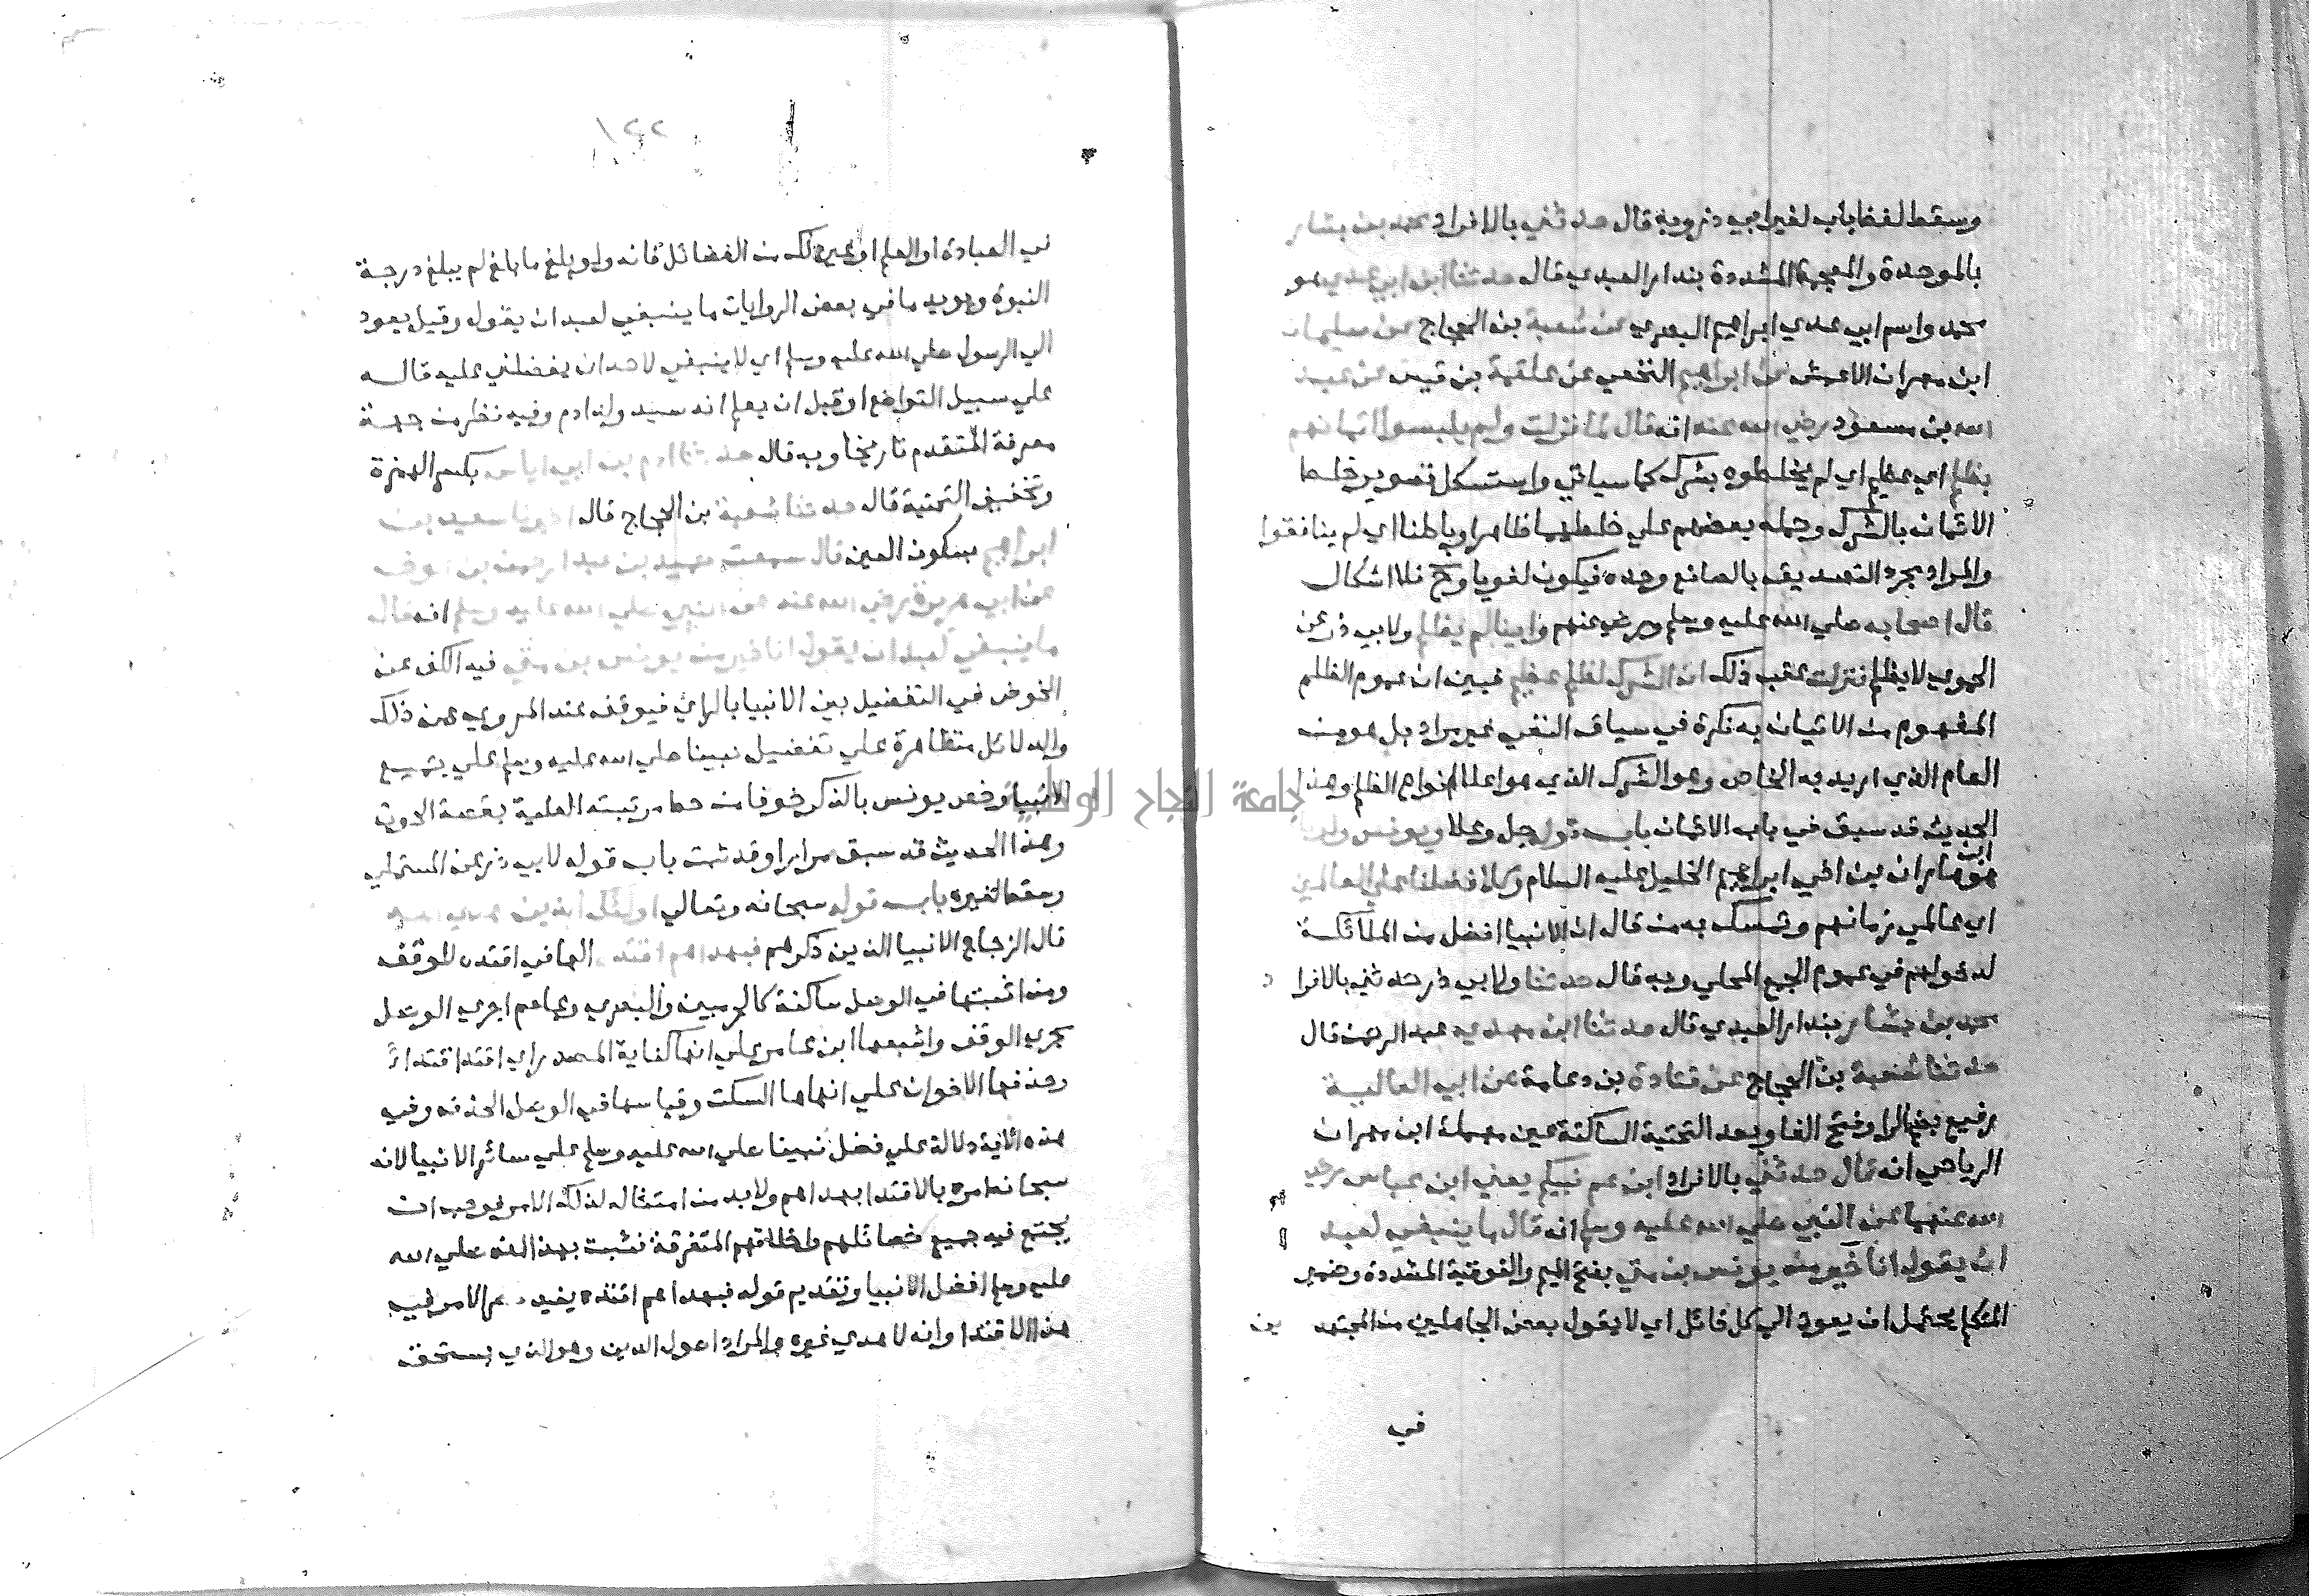 وسقط لفظ باب لغير ابي ذر وبه قال حدثني بالافراد محمد بن بشار
بالموحدة والمعجمة المشددة بندار العبدي قال حدثنا ابن ابي عدي هو
محمد واسم ابي عدي ابراهيم البصري عن شعبة بن الحجاج عن سليمان
ابن مهران الاعمش عن ابراهيم النخعي عن علقمة بن قيس عن عبد
الله بن مسعود رضي الله عنه انه قال لما نزلت ولم يلبسوا ايمانهم
بظلم اي عظيم اي لم يخلطوه بشرك كما سياتي واستشكل تصوير خلط
الايمان بالشرك وحمله بعضهم علي خلطهما ظاهرا وباطنا اي لم ينافقوا
والمراد مجرد التصديق بالصانع وحده فيكون لغويا وح فلا اشكال
قال اصحابه صلي الله عليه وسلم ورضي عنهم واينا لم يظلم ولابي ذر عن
الحموي لا يظلم فنزلت عقب ذلك ان الشرك لظلم عظيم فبين ان عموم الظلم
المفهوم من الاتيان به نكرة في سياق النفي غير مراد بل هو من
العام الذي اريد به الخاص وهو الشرك الذي هو اعلا انواع الظلم وهذا
الحديث قد سبق في باب الايمان باب قول جل وعلا ويونس ولوطا
هو ابن هاران بن اخي ابراهيم الخليل عليه السلام وكلا فضلنا علي العالمين
اي عالمي زمانهم وتمسك به من قال ان الانبيا افضل من الملائكة
لدخولهم في عموم الجمع المحلي وبه قال حدثنا ولابي ذر حدثني بالافراد
محمد بن بشار بندار العبدي قال حدثنا ابن مهدي عبد الرحمن قال
حدثنا شعبة بن الحجاج عن قتادة بن دعامة عن ابي العالية
رفيع بضم الرا وفتح الفا وبعد التحتية الساكنة عين مهملة ابن مهران
الرياحي انه قال حدثني بالافراد ابن عم نبيكم يعني ابن عباس رضي
الله عنهما عن النبي صلي الله عليه وسلم انه قال ما ينبغي لعبد
ان يقول انا خير من يونس بن متي بفتح الميم والفوقية المشددة وضمير
المتكلم يحتمل ان يعود الي كل قائل اي لا يقول بعض الجاهلين من المجتهدين
في
١٢٢
في العبادة او العلم او غير ذلك من الفضائل فانه ولو بلغ ما بلغ لم يبلغ درجة
النبوة ويويده ما في بعض الروايات ما ينبغي لعبد ان يقول وقيل يعود
الي الرسول صلي الله عليه وسلم اي لا ينبغي لاحد ان يفضلني عليه قاله
علي سبيل التواضع او قبل ان يعلم انه سيد ولد ادم وفيه نظر من جهة
معرفة المتقدم تاريخا وبه قال حدثنا ادم بن ابي اياس بكسر الهمزة
وتخفيف التحتية قال حدثنا شعبة بن الحجاج قال اخبرنا سعد بن
ابراهيم بسكون العين قال سمعت حميد بن عبد الرحمن بن عوف
عن ابي هريرة رضي الله عنه عن النبي صلي الله عليه وسلم انه قال
ما ينبغي لعبد ان يقول انا خير من يونس بن متي فيه الكف عن
الخوض في التفضيل بين الانبيا بالراي فيوقف عند المروي من ذلك
والدلائل متظاهرة علي تفضيل نبينا صلي الله عليه وسلم علي جميع
الانبيا وخص يونس بالذكر خوفا من حط مرتبته العلية بقصة الحوت
وهذا الحديث قد سبق مرارا وقد ثبت باب قوله لابي ذر عن المستملي
وسقط لغيره باب قوله سبحانه وتعالي اولئك الذين هدي الله
قال الزجاج الانبيا الذين ذكرهم فبهداهم اقتده الها في اقتده للوقف
ومن اثبتها في الوصل ساكنة كالحرميين والبصري وعاصم اجري الوصل
مجري الوقف واشبعها ابن عامر علي انها كناية المصدر اي اقتد اقتداءً
وحذفها الاخوان علي انها ها السكت وقياسها في الوصل الحذف وفي
هذه الاية دلالة علي فضل نبينا صلي الله عليه وسلم علي سائر الانبيا لانه
سبحانه امره بالاقتدا بهداهم ولا بد من امتثاله لذلك الامر فوجب ان
يجتمع فيه جميع خصائلهم واخلاقهم المتفرقة فثبت بهذا انه صلي الله
عليه وسلم افضل الانبيا وتقديم قوله فبهداهم اقتده يفيد حصر الامر في
هذا الاقتدا وانه لا هدي غيره والمراد اصول الدين وهو الذي يستحق
جامعة النجاح الوطنية